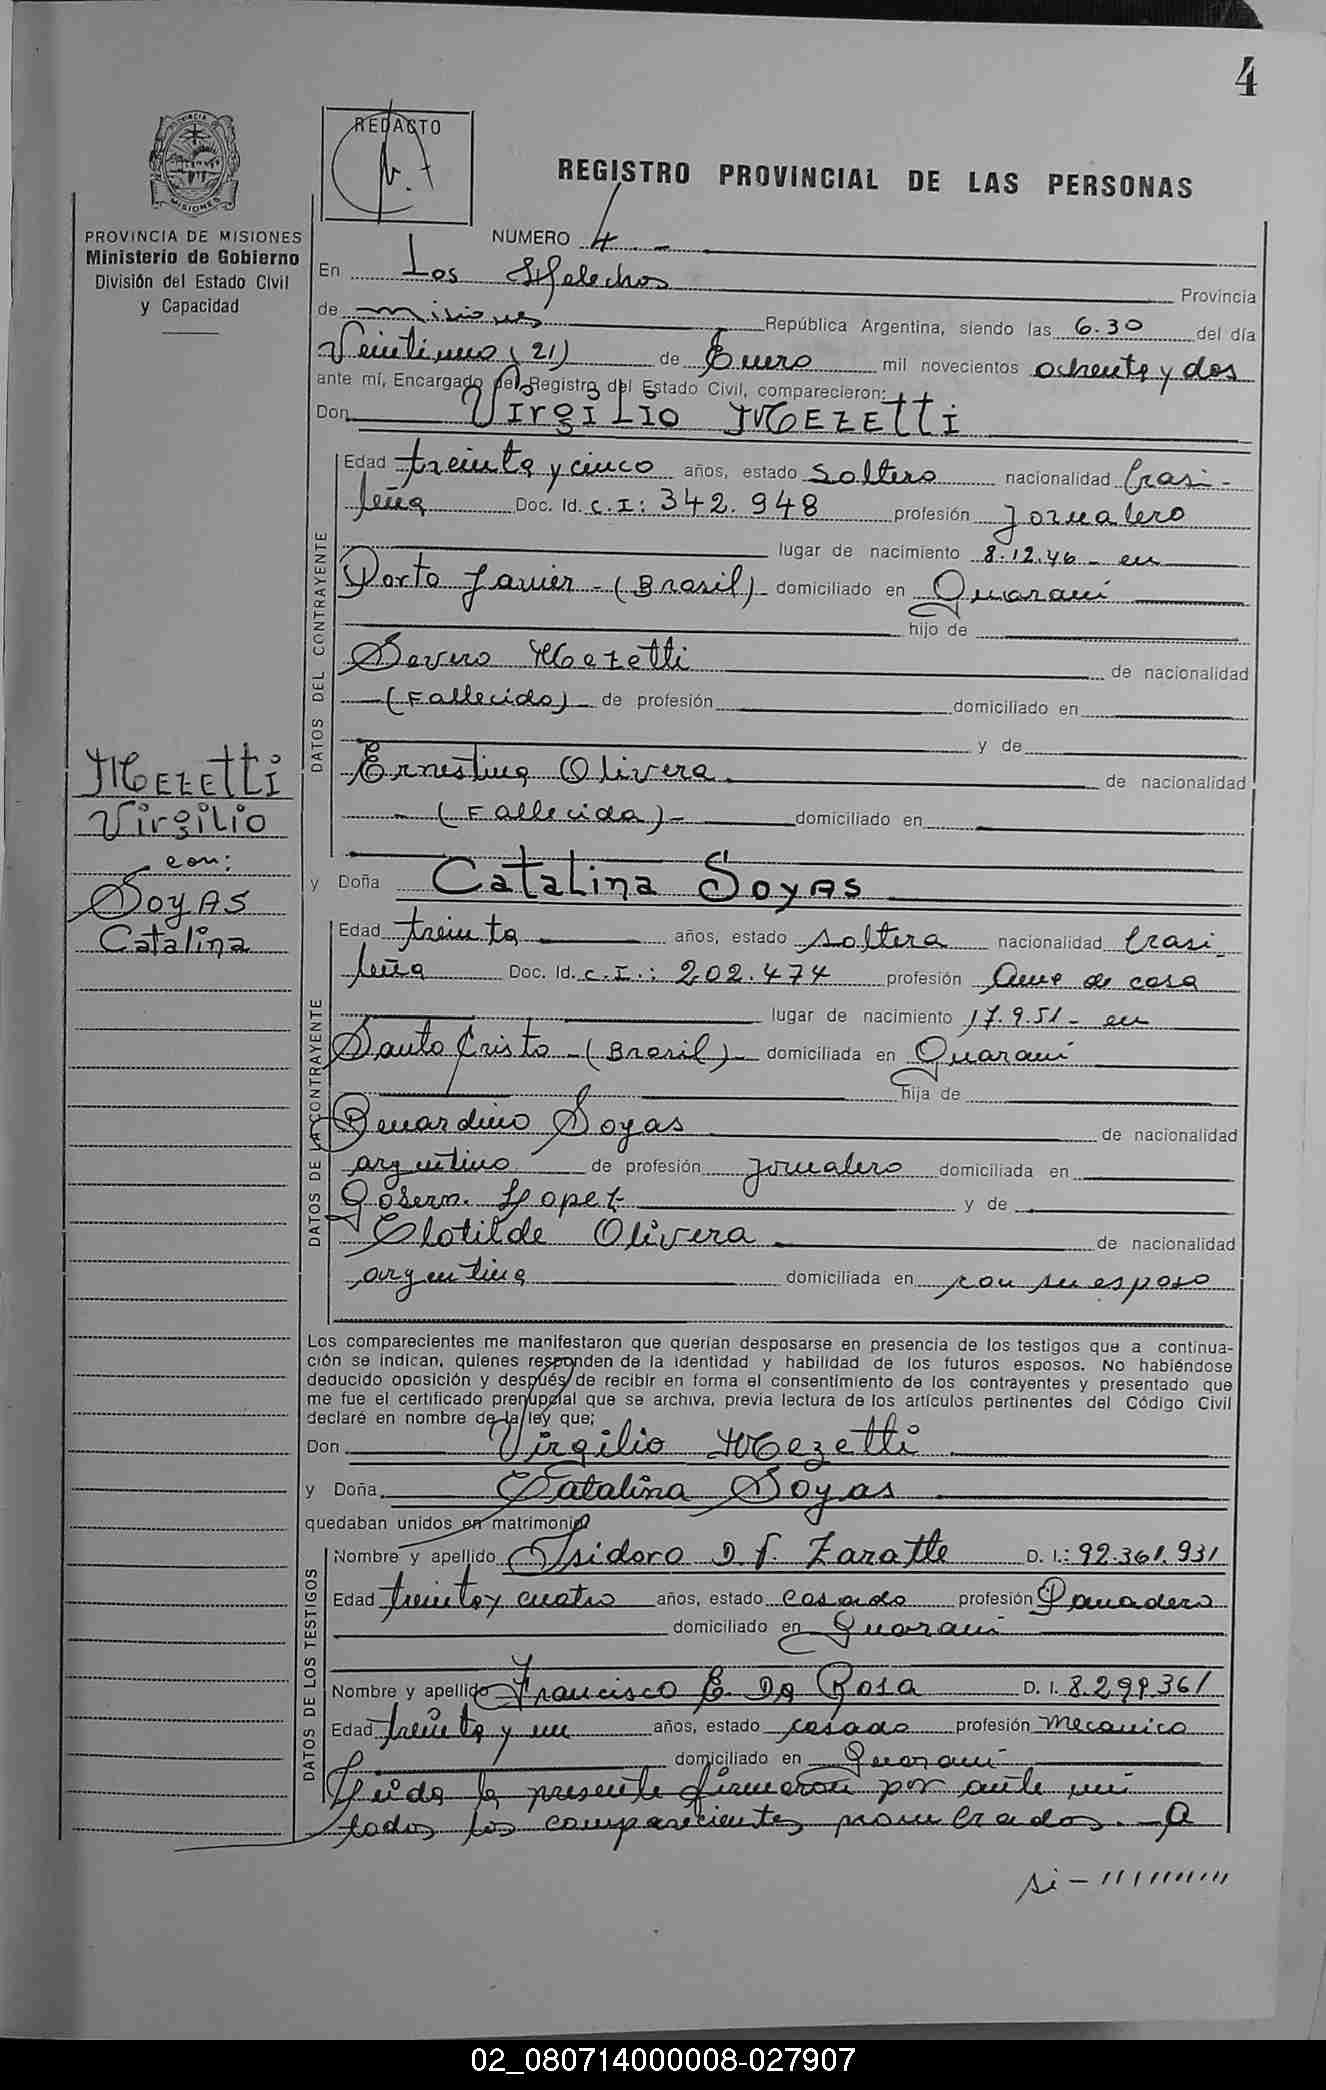 4
REDACTO
PROVINCIA
MISIONES
REGISTRO PROVINCIAL DE LAS PERSONAS
PROVINCIA DE MISIONES
Ministerio de Gobierno
División del Estado Civil
y Capacidad
NUMERO 4 -
En Los Helechos Provincia
de misiones República Argentina, siendo las 6.30 del día
Veintiuno (21) de Enero mil novecientos ochenta y dos
ante mí, Encargado del Registro del Estado Civil, comparecieron:
Don VirgiLio MEZEtti
DATOS DEL CONTRAYENTE
Edad treinta y cinco años, estado soltero nacionalidad brasi-
leña Doc. Id. C.I: 342.948 profesión Jornalero
lugar de nacimiento 8.12.46 - en
Porto Javier - (Brasil) - domiciliado en Guaraní
hijo de
Severo Mezetti de nacionalidad
(Fallecido) de profesión domiciliado en
y de
Ernestina Olivera de nacionalidad
- (Fallecida) - domiciliado en
MEZEttI
VirgiLio
con:
SoyAS
Catalina
y Doña CataLina SoyAS
DATOS DE LA CONTRAYENTE
Edad treinta años, estado soltera nacionalidad brasi-
leña Doc. Id. C.I.: 202.474 profesión Ama de casa
lugar de nacimiento 17.9.51 - en
Santo Cristo - (Brasil) - domiciliada en Guaraní
hija de
Benardino Soyas de nacionalidad
argentino de profesión Jornalero domiciliada en
Gobern. Lopez y de
Clotilde Olivera de nacionalidad
argentina domiciliada en con su esposo
Los comparecientes me manifestaron que querían desposarse en presencia de los testigos que a continua-
ción se indican, quienes responden de la identidad y habilidad de los futuros esposos. No habiéndose
deducido oposición y después de recibir en forma el consentimiento de los contrayentes y presentado que
me fue el certificado prenupcial que se archiva, previa lectura de los artículos pertinentes del Código Civil
declaré en nombre de la ley que;
Don Virgilio Mezetti
y Doña Catalina Soyas
quedaban unidos en matrimonio
DATOS DE LOS TESTIGOS
Nombre y apellido Isidoro D. f. Zaratte D. I.: 92.361.931
Edad treinta y cuatro años, estado casado profesión Panadero
domiciliado en Guaraní
Nombre y apellido Francisco E. Da Rosa D. I. 8.299.361
Edad treinta y un años, estado casado profesión mecanico
domiciliado en Guaraní
Leida la presente firmaron por ante mi
todos los comparecientes nombrados. - A
si - 
02_080714000008-027907